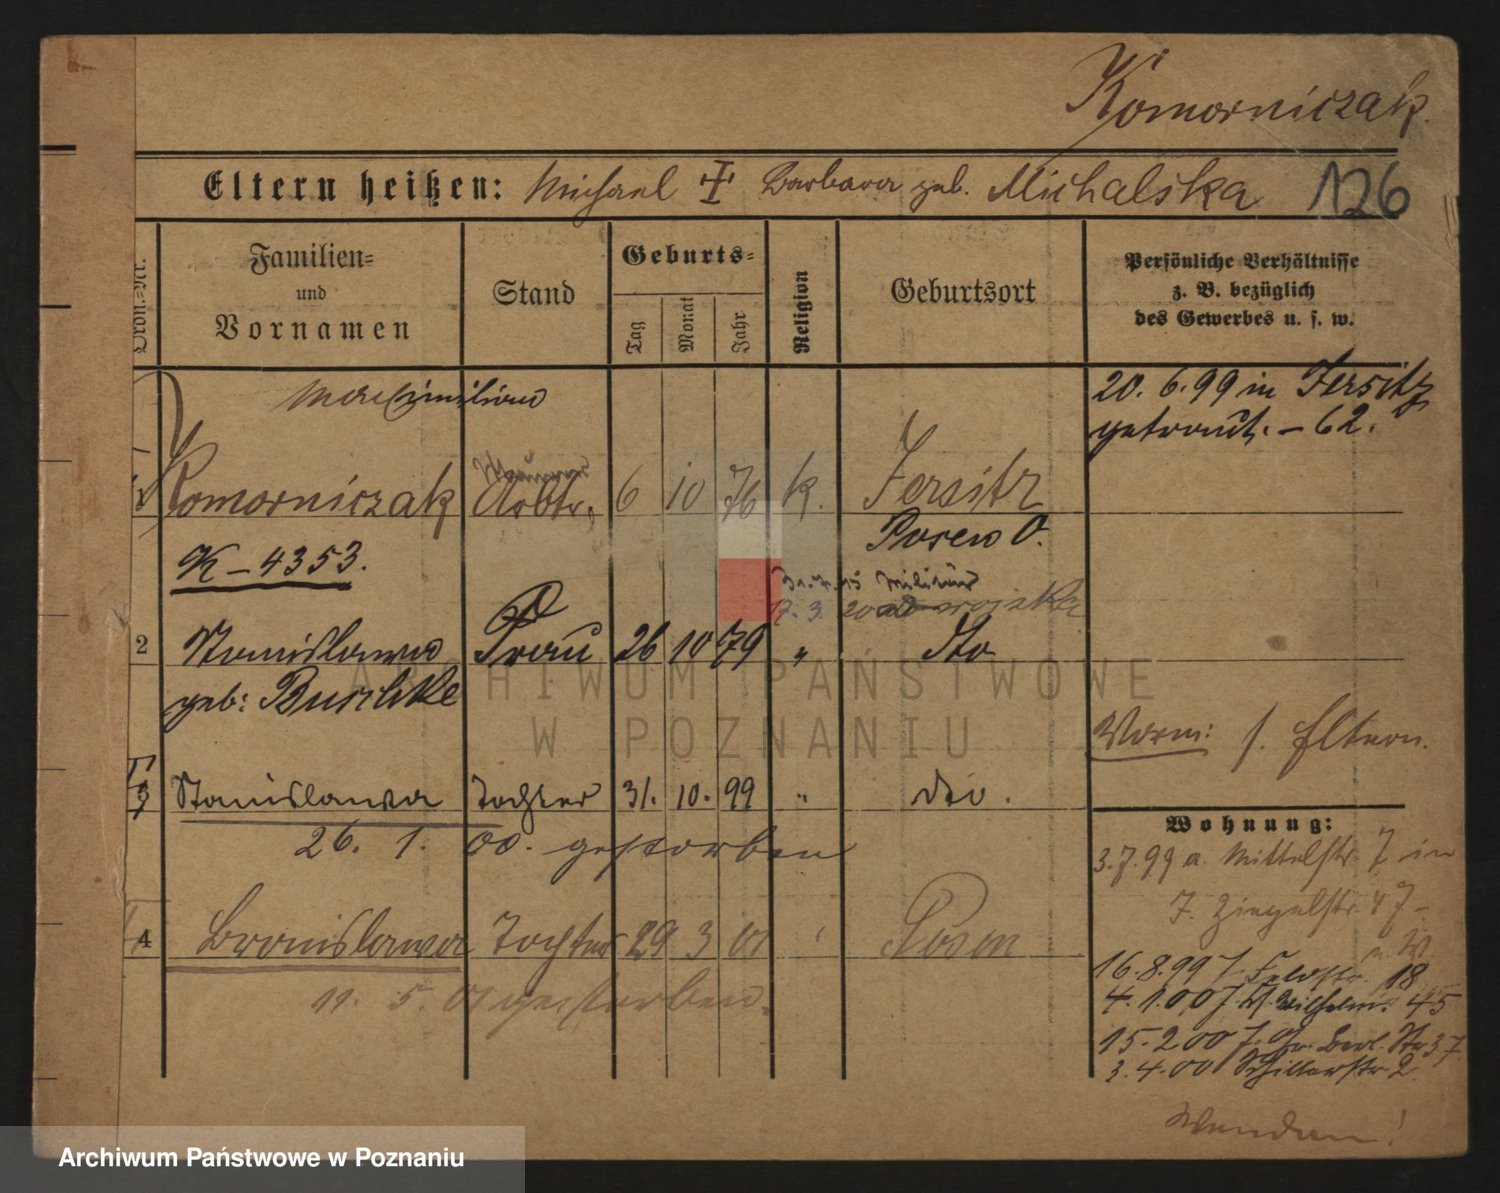 Komorniczak.
Eltern heißen: Michael ✝ Barbara geb. Michalska 126
Ordn.-Nr.
Familien- und Vornamen
Stand
Geburts-
Tag
Monat
Jahr
Religion
Geburtsort
Persönliche Verhältnisse
z. B. bezüglich
des Gewerbes u. s. w.
Maximilian
20. 6. 99 in Jersitz
getraut. – 62.
Komorniczak Arbtr. 6 10 76 k. Jersitz
Posen O.
K – 4353.
31.7.15 Militär
17. 3. 20 wojska
2 Stanislawa Frau 26 10 79 " dto
geb: Buschke
Vorm: s. Eltern.
3 Stanislawa Tochter 31. 10. 99 " dto.
26. 1. 00. gestorben
4 Bronislawa Tochter 29 3 01 " Posen
11. 5. 01 gestorben.
Wohnung:
3.7.99 a. Mittelstr. 7 in
J. Ziegelstr. 47
16.8.99 J. Feldstr. 18
4.1.00 J. Wilhelm. 45
15.2.00 J. Gr. Berl. Str 37
3.4.00 Schillerstr. 2
Wenden!
ARCHIWUM PAŃSTWOWE
W POZNANIU
Archiwum Państwowe w Poznaniu